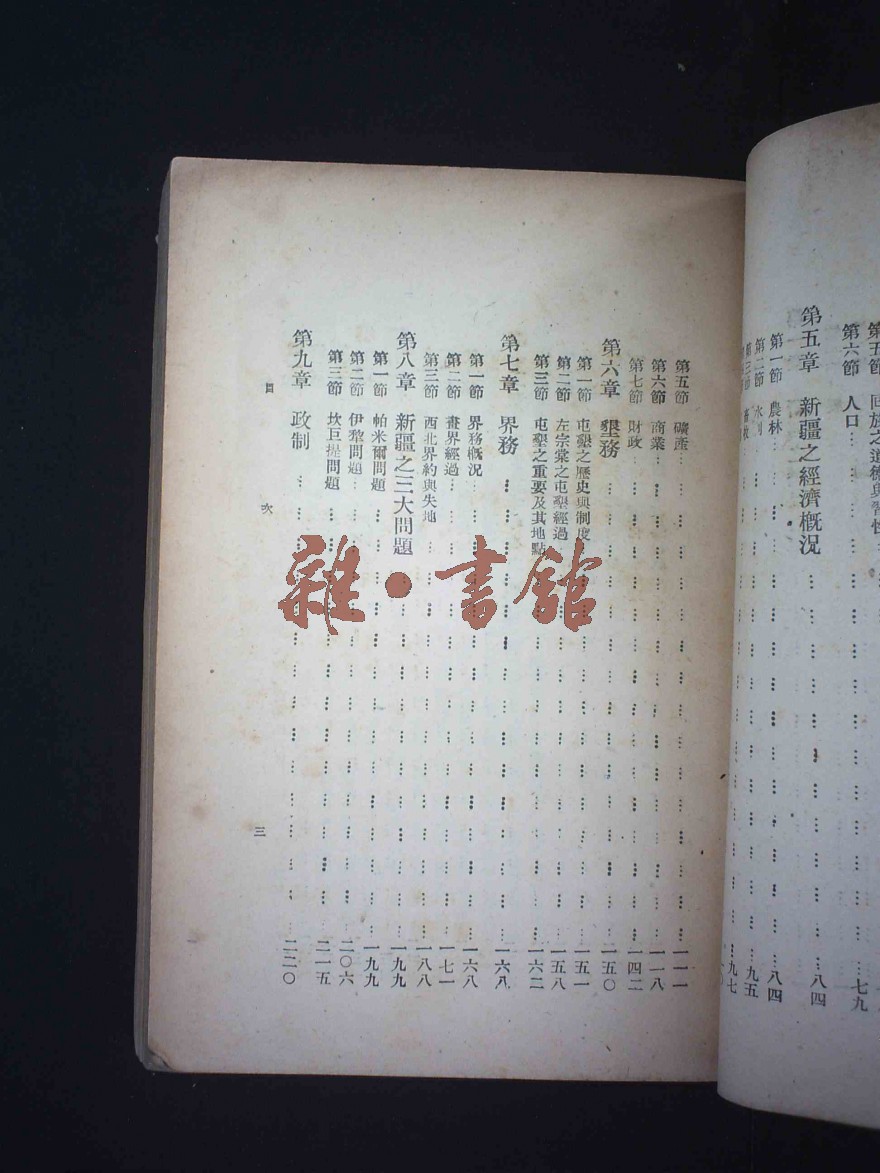 第五節 回族之道德與習性
第六節 人口 … 七九
第五章 新疆之經濟概況 … 八四
第一節 農林 … 八四
第二節 水利 … 九五
第三節 … 九七
第五節 礦產 … 一一一
第六節 商業 … 一一八
第七節 財政 … 一四二
第六章 墾務 … 一五〇
第一節 屯墾之歷史與制度 … 一五一
第二節 左宗棠之屯墾經過 … 一五八
第三節 屯墾之重要及其地點 … 一六二
第七章 界務 … 一六八
第一節 界務概況 … 一六八
第二節 畫界經過 … 一七一
第三節 西北界約與失地 … 一八八
第八章 新疆之三大問題 … 一九九
第一節 帕米爾問題 … 一九九
第二節 伊犂問題 … 二〇六
第三節 坎巨提問題 … 二一五
第九章 政制 … 二二〇
目 次 三
雜·書館